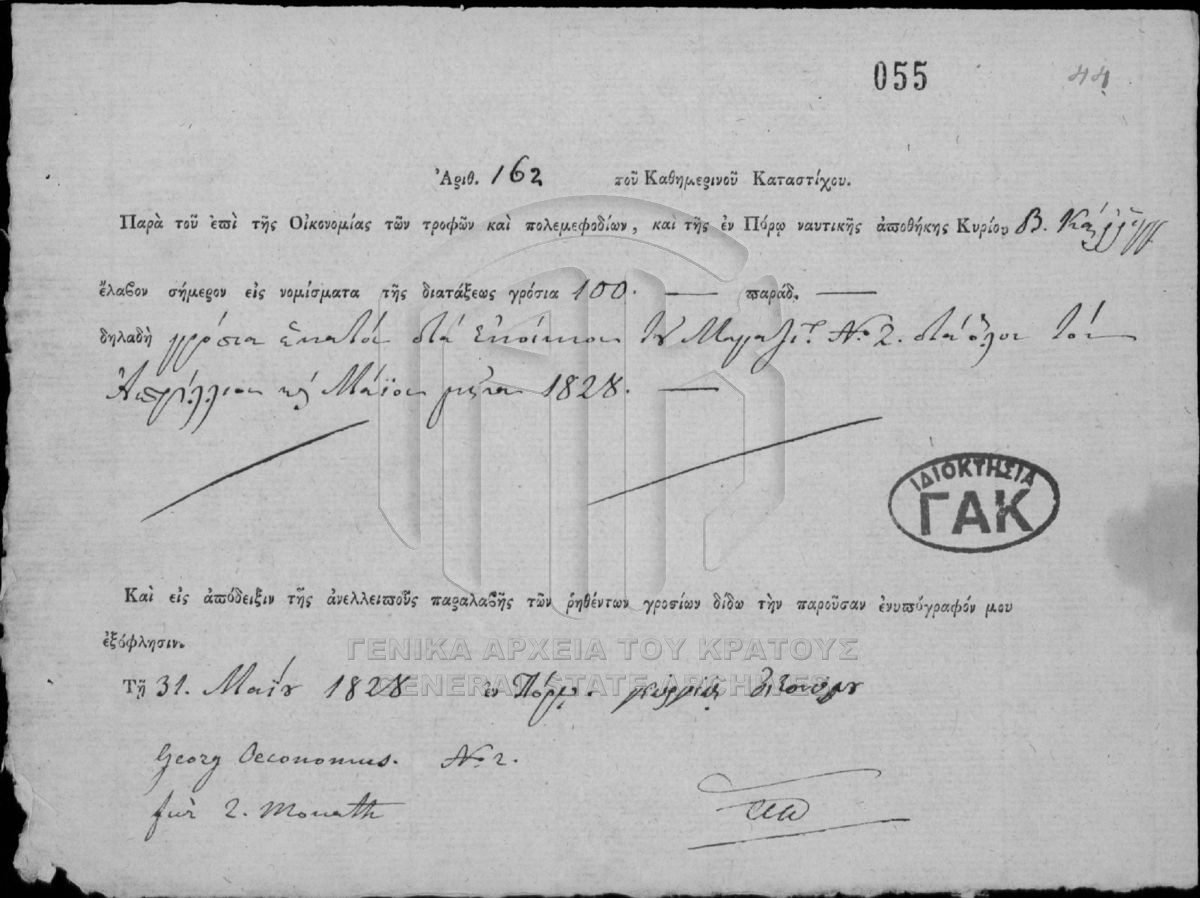 055 44
Ἀριθ. 162 τοῦ Καθημερινοῦ Καταστίχου.
Παρὰ τοῦ ἐπὶ τῆς Οἰκονομίας τῶν τροφῶν καὶ πολεμεφοδίων, καὶ τῆς ἐν Πόρῳ ναυτικῆς ἀποθήκης Κυρίου Β.
ἔλαβον σήμερον εἰς νομίσματα τῆς διατάξεως γρόσια 100. — παράδ. —
δηλαδὴ γρόσια ἑκατόν διά ἐνοίκιον τοῦ Μαγαζ. Νο 2. διά ὅλον τόν
Ἀπρίλλιον καὶ Μάϊον μῆνα 1828. —
ΙΔΙΟΚΤΗΣΙΑ
ΓΑΚ
Καὶ εἰς ἀπόδειξιν τῆς ἀνελλειποῦς παραλαβῆς τῶν ῥηθέντων γροσίων δίδω τὴν παροῦσαν ἐνυπόγραφόν μου
ἐξόφλησιν.
ΓΕΝΙΚΑ ΑΡΧΕΙΑ ΤΟΥ ΚΡΑΤΟΥΣ
GENERAL STATE ARCHIVES
Τῇ 31. Μαΐου 1828 ἐν Πόρῳ. γεωργιος
Georg Oeconomus. No 2.
für 2. Monath